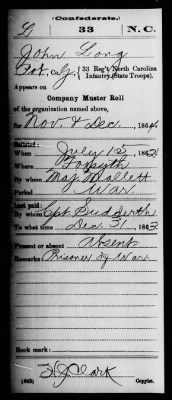 (Confederate.)
L 33 N.C.
John Long
Pvt, Co. G, 33 Reg't North Carolina
Infantry (State Troops).
Appears on
Company Muster Roll
of the organization named above,
for Nov & Dec, 1864.
Enlisted:
When July 15, 1862
Where Forsyth
By whom Maj. Mallett
Period War
Last paid:
By whom Cpt. Sudderth
To what time Dec. 31, 1863
Present or absent Absent
Remarks: Prisoner of War
Book mark:
(642) Copyist.